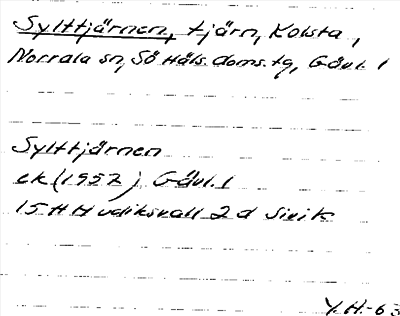 Sylttjärnen, tjärn, Kolsta,
Norrala sn, Sö Häls. doms. tg, Gävl. l
Sylttjärnen
ek (1957) Gävl. l
15 H Hudiksvall 2 d
Y.H.-63